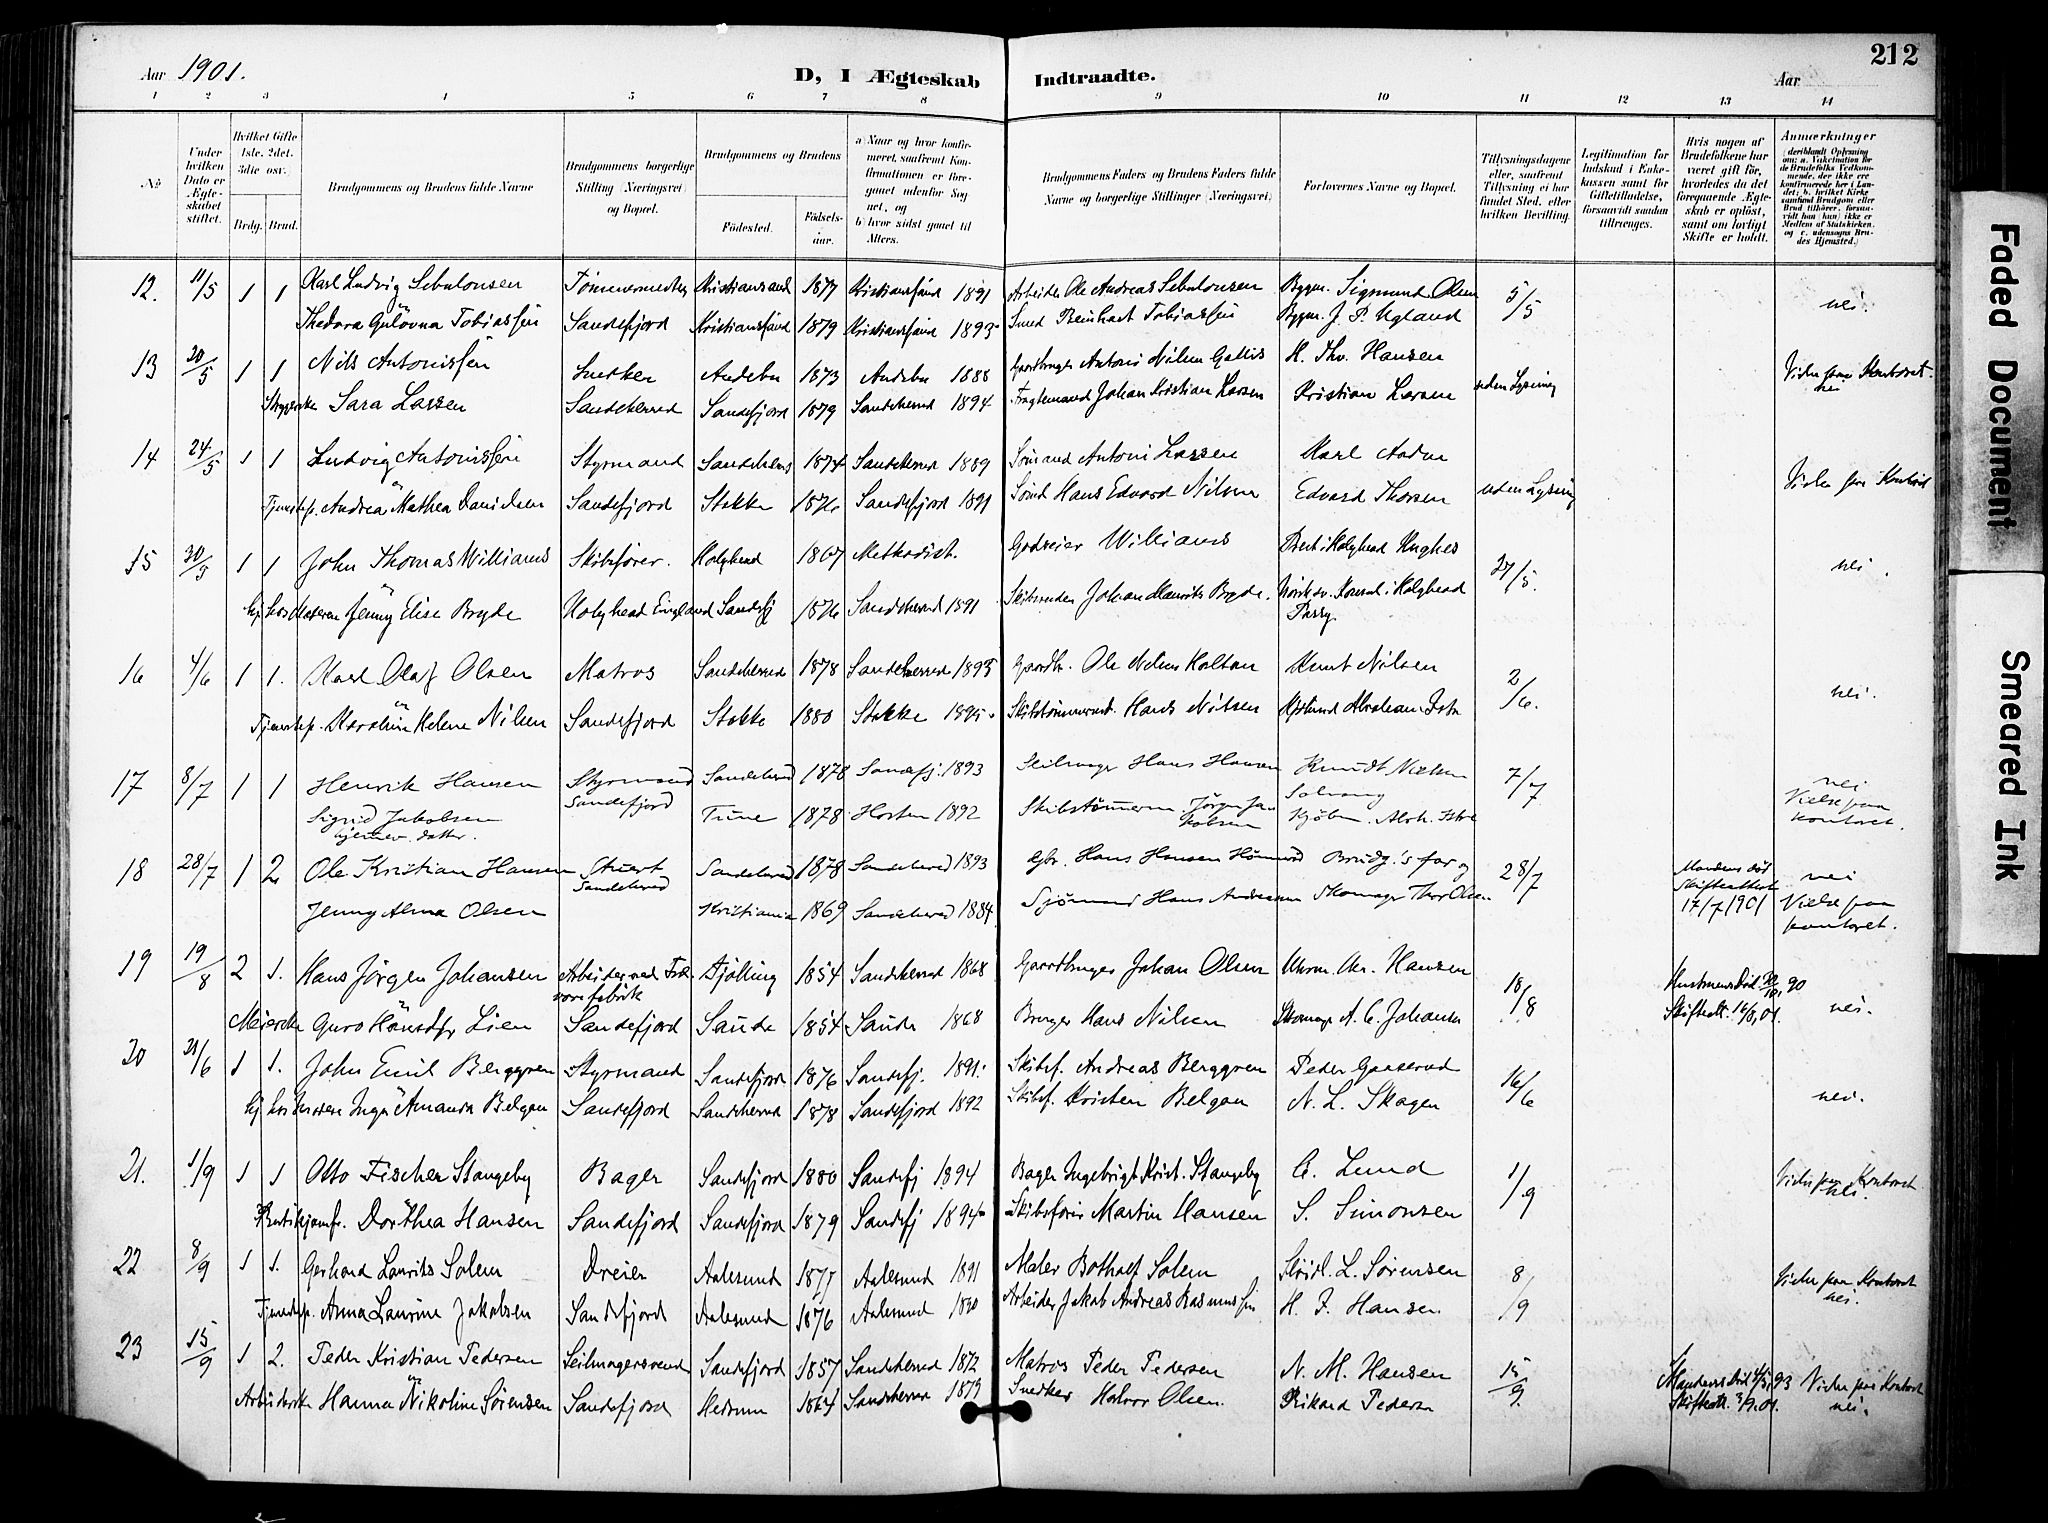 Aar 1901.
D, I Ægteskab Indtraadte.
Aar
212
1 2 3 4 5 6 7 8 9 10 11 12 13 14
No
Under hvilken Dato er Ægteskabet stiftet.
Hvilket Gifte 1ste. 2det. 3die osv.
Brdg. Brud.
Brudgommens og Brudens fulde Navne
Brudgommens borgerlige Stilling (Næringsvei) og Bopæl.
Brudgommens og Brudens
Fødested. Fødselsaar.
a) Naar og hvor konfirmeret, saafremt Konfirmationen er foregaaet udenfor Sognet, og
b) hvor sidst gaaet til Alters.
Brudgommens Faders og Brudens Faders fulde Navne og borgerlige Stillinger (Næringsvei)
Forlovernes Navne og Bopæl.
Tillysningsdagene eller, saafremt Tillysning ei har fundet Sted, efter hvilken Bevilling.
Legitimation for Indskud i Enkekassen samt for Giftetilladelse, forsaavidt saadan tiltrænges.
Hvis nogen af Brudefolkene har været gift før, hvorledes da det foregaaende Ægteskab er opløst, samt om lovligt Skifte er holdt.
Anmærkninger
12. 11/5 1 1 Karl Ludvig Sebulonsen Kristiansand 1877 Kristianssand 1891 Arbeider Ole Andreas Sebulonsen Byggm. Sigmund Olsen 5/5 nei.
Thedora Gulovna Tobiassen Sandefjord Kristianssand 1879 Kristianssand 1893 Smed Reinhart Tobiassen Byggm. J. P. Ugland
13 20/5 1 1 Nils Antonissen Snekker Andebu 1873 Andebu 1888 Gaardbruger Antoni Nilsen Gallis H. Thv. Hansen uden Lysning Vielse paa Kontoret. nei
Sara Larsen Sandeherred Sandefjord 1879 Sandeherred 1894 Fragtemand Johan Kristian Larsen Kristian Larsen
14 24/5 1 1 Ludvig Antonissen Styrmand Sandeherred 1874 Sandeherred 1889 Sømand Antoni Larsen Karl uden Lysning Vielse paa Kontoret
Tjenestep. Andrea Mathea Danielsen Sandefjord Stokke 1876 Sandefjord 1891 Hans Edvard Nilsen Edvard Thorsen
15 30/5 1 1 John Thomas Williams Skibsfører. Holyhead 1867 Methodist. Godseier Williams Prest i Holyhead Hughes 27/5. nei.
Jenny Elise Bryde Holyhead England Sandefj 1876 Sandeherred 1891 Skibsreder Johan Maurits Bryde. Norsk sv. Konsul i Holyhead
Parry.
16 4/6 1 1. Karl Olaf Olsen Matros Sandeherred 1878 Sandeherred 1893 Gaardbr. Ole Nilsen Holtan Knut Nilsen 2/6. nei.
Tjenestep. Karoline Helene Nilsen Sandefjord Stokke 1880 Stokke 1895 Hans Nilsen Abraham
17 8/7 1 1 Henrik Hansen Styrmand Sandeherred 1878 Sandefj. 1893 Seilmager Hans Hansen Knudt Nielsen 7/7 nei
Sandefjord Solvang
Sigrid Jakobsen Tune 1878 Horten 1892 Skibstømmerm. Jørgen Jakobsen Vielse paa kontoret.
hjemmev. datter.
18 28/7 1 2 Ole Kristian Hansen Stuert Sandeherred 1878 Sandeherred 1893 Gbr. Hans Hansen Brudg.'s far og 28/7 Mandens død Skifteattest 17/7 1901 nei
Sandeherred
Jenny Alma Olsen Kristiania 1869 Sandeherred 1884 Sjømand Hans Andersen Skomager Thor Olsen Vielse paa kontoret.
19 19/8 2 1. Hans Jørgen Johansen Arbeider ved Tjølling 1854 Sandeherred 1868 Gaardbruger Johan Olsen Hansen 18/8 Hustruens Død 90 nei.
Meierske Guro Hansdtr Lien Sandefjord Saude 1854 Saude 1868 Bruger Hans Nilsen Skomager A. C. Johansen Skifteatt. 16/8, 01.
20 21/6 1 1. John Emil Berggren Styrmand Sandefjord 1876 Sandefj. 1891. Skibsf. Andreas Berggren Peder Gaaserud 16/6 nei.
Inga Amanda Belgau Sandefjord Sandeherred 1878 Sandefjord 1892 Skibsf. Kristen Belgau N. L. Skagen
21. 1/9 1 1 Otto Fischer Stangeby Bager Sandefjord 1880 Sandefj 1894 Bager Ingebrigt Krist. Stangeby C. Lund 1/9 Vielse paa Kontoret nei.
Butikjomfr. Dorthea Hansen Sandefjord Sandefjord 1879 Sandefj 1894 Skibsfører Martin Hansen S. Simonsen
22 8/9 1 1. Gerhard Laurits Solem Dreier Aalesund 1877 Aalesund 1891 Maler Botholf Solem L. Sørensen 8/9 Vielse paa Kontoret nei.
Tjenestep. Anna Laurine Jakobsen Sandefjord Aalesund 1876 Aalesund 1890 Arbeider Jakob Andreas Rasmussen H. J. Hansen
23 15/9 1 2. Peder Kristian Pedersen Seilmagersvend Sandefjord 1857 Sandeherred 1872 Matros Peder Pedersen N. M. Hansen 15/9. Mandens Død 93 Vielse paa Kontoret nei.
Arbeiderske Hanna Nikoline Sørensen Sandefjord Hedrum 1864 Sandeherred 1879 Snedker Halvor Olsen. Rikard Pedersen Skifteatt. 3/9.01.
Faded Document
Smeared Ink